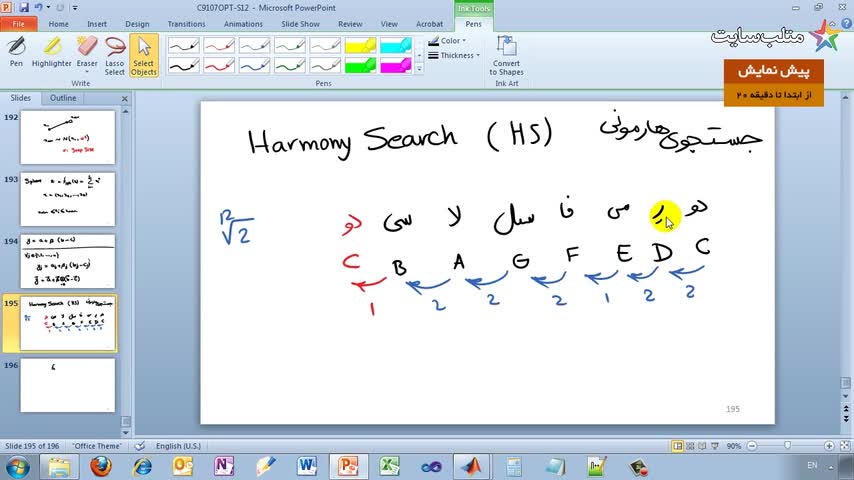 C9107OPT-S12 - Microsoft PowerPoint
Ink Tools
File Home Insert Design Transitions Animations Slide Show Review View Acrobat Pens
Pen Highlighter Eraser Lasso Select Select Objects
Color
Thickness
Convert to Shapes
Write Pens Ink Art
متلب‌سایت
پیش نمایش
از ابتدا تا دقیقه ۲۰
Slides Outline
192
193
194
195
196
Harmony Search (HS) جستجوی هارمونی
دو ر می فا سل لا سی دو
12√2
C B A G F E D C
1 2 2 2 1 2 2
195
Slide 195 of 196 "Office Theme" English (U.S.) 90%
EN